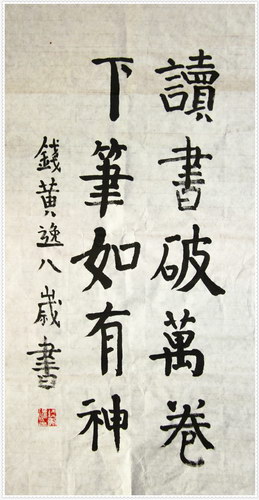 讀書破萬卷
下筆如有神
錢黃逸八歲書